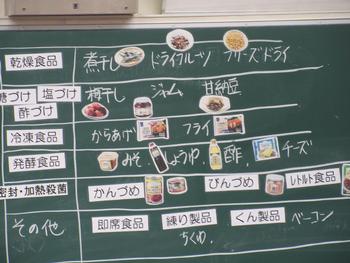 乾燥食品 煮干し ドライフルーツ フリーズドライ
糖づけ 塩づけ 梅干し ジャム 甘納豆
酢づけ
冷凍食品 からあげ フライ
発酵食品 みそ しょうゆ 酢 チーズ
密封・加熱殺菌 かんづめ びんづめ レトルト食品
その他 即席食品 練り製品 くん製品 ベーコン
ちくわ